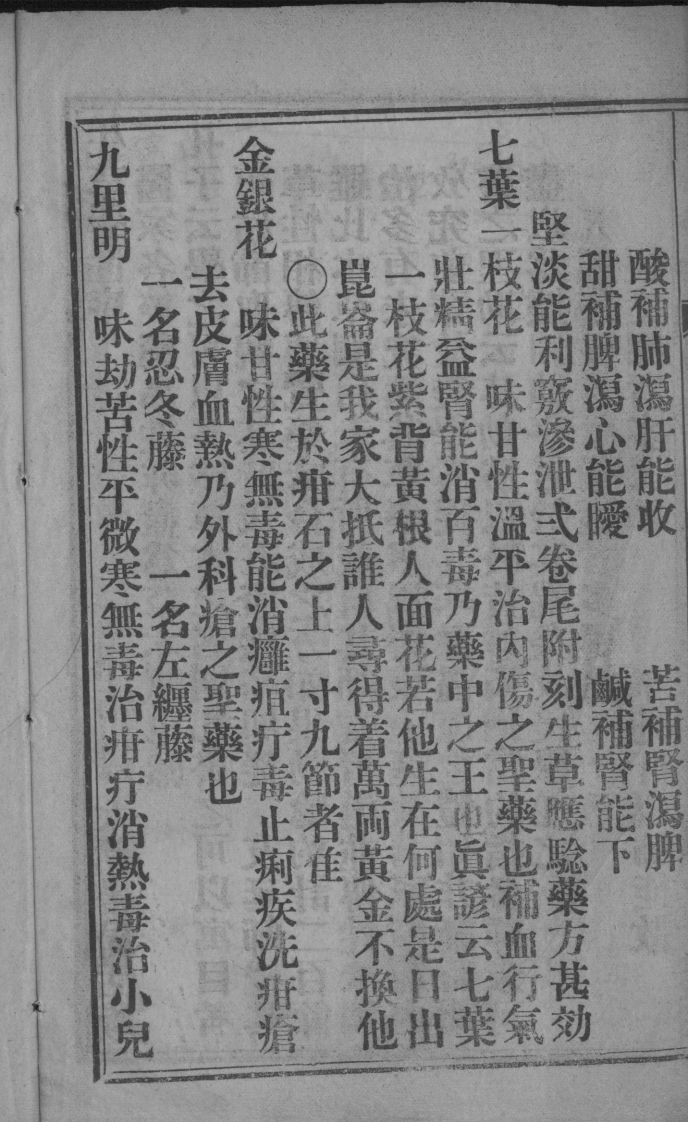 酸補肺瀉肝能收　苦補腎瀉脾
甜補脾瀉心能曖　鹹補腎能下
堅淡能利竅滲泄弍卷尾附刻生草應騐藥方甚効
七葉一枝花　味甘性溫平治內傷之聖藥也補血行氣
壯精益腎能消百毒乃藥中之王也眞諺云七葉
一枝花紫背黃根人面花若他生在何處是日出
崑崙是我家大抵誰人尋得着萬両黃金不換他
〇此藥生於疳石之上一寸九節者佳
金銀花　味甘性寒無毒能消癰疽疔毒止痢疾洗疳瘡
去皮膚血熱乃外科瘡之聖藥也
一名忍冬藤　一名左纒藤
九里明　味劫苦性平微寒無毒治疳疔消熱毒治小兒